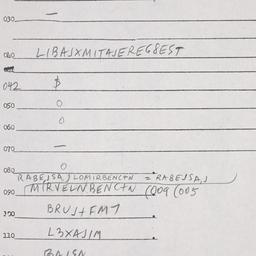 030 —
040 LIBAJXMITAJEREG8EST
042 $
050 O
060 O
070 —
080 O
RABEJSAJ LOMIRBENC+N = RABEJSAJ
090 MIRVELNBENC+N (009 (005
100 BRUJ+FM7
110 L3XAJIM
BAJSN